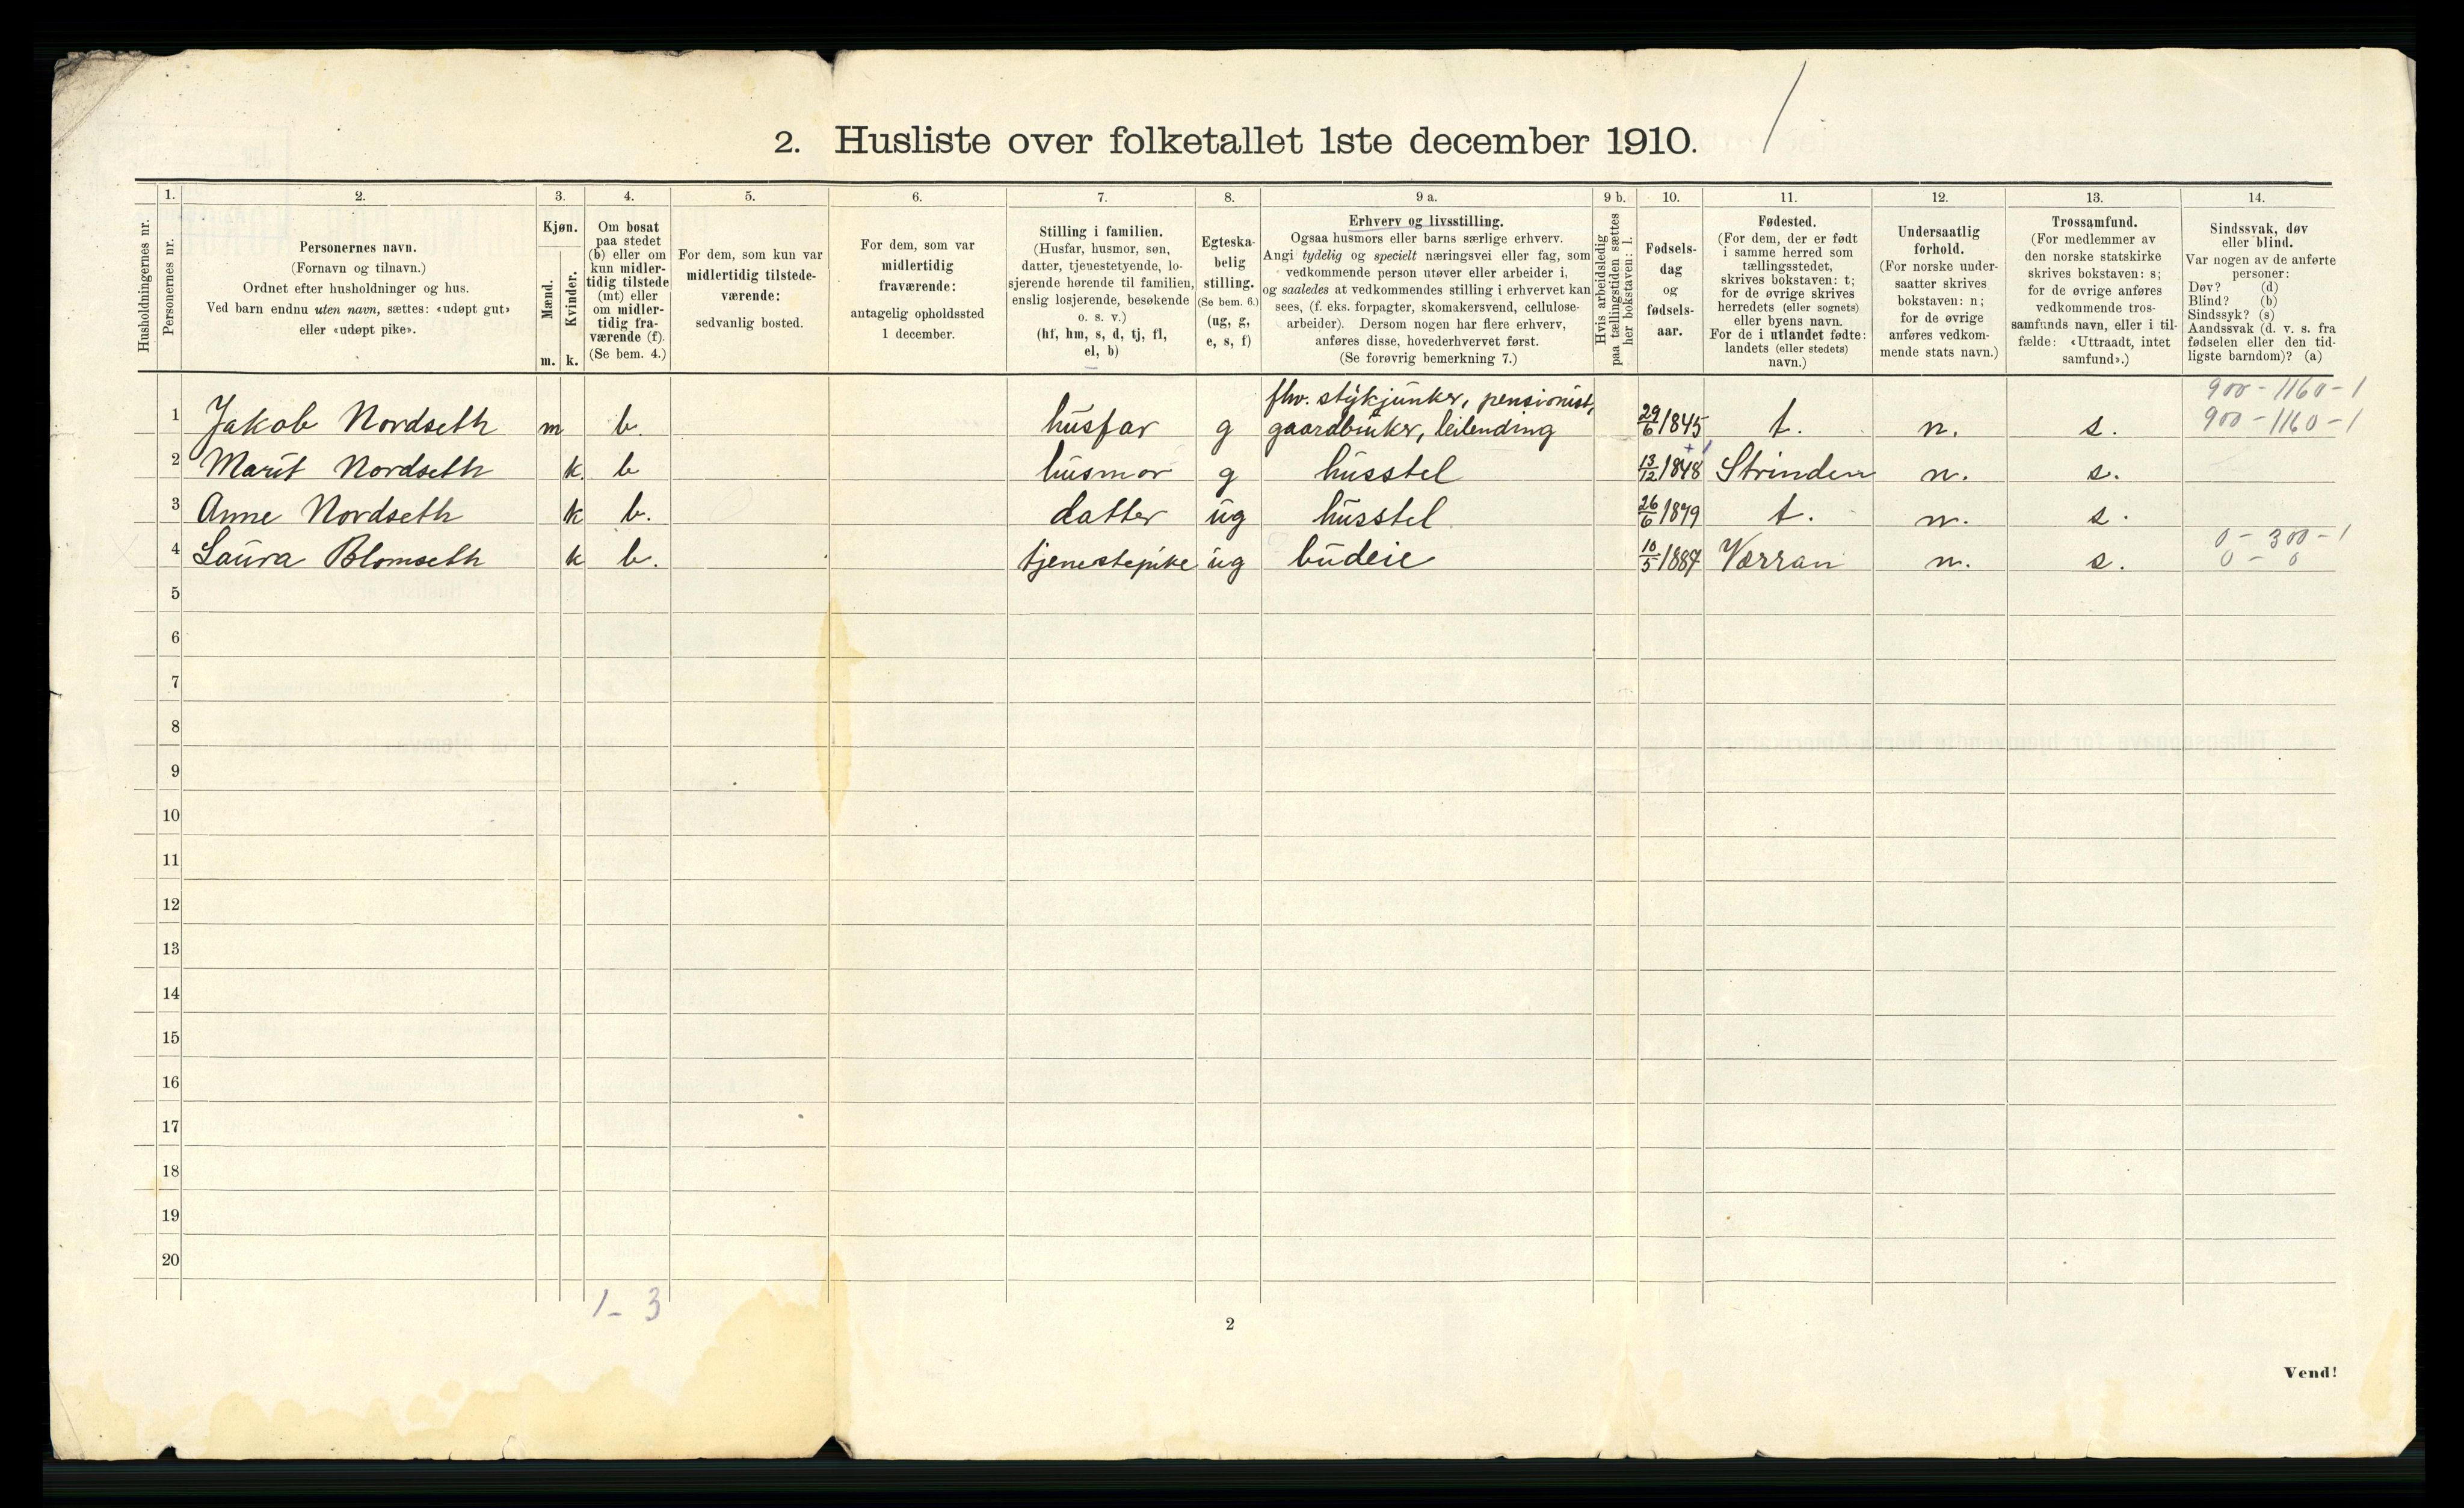 2. Husliste over folketallet 1ste december 1910.
Husholdningernes nr.
1.
Personernes nr.
2.
Personernes navn.
(Fornavn og tilnavn.)
Ordnet efter husholdninger og hus.
Ved barn endnu uten navn, sættes: «udøpt gut»
eller «udøpt pike».
3.
Kjøn.
Mænd.
Kvinder.
m. k.
4.
Om bosat
paa stedet
(b) eller om
kun midler-
tidig tilstede
(mt) eller
om midler-
tidig fra-
værende (f).
(Se bem. 4.)
5.
For dem, som kun var
midlertidig tilstede-
værende:
sedvanlig bosted.
6.
For dem, som var
midlertidig
fraværende:
antagelig opholdssted
1 december.
7.
Stilling i familien.
(Husfar, husmor, søn,
datter, tjenestetyende, lo-
sjerende hørende til familien,
enslig losjerende, besøkende
o. s. v.)
(hf, hm, s, d, tj, fl,
el, b)
8.
Egteska-
belig
stilling.
(Se bem. 6.)
(ug, g,
e, s, f)
9 a.
Erhverv og livsstilling.
Ogsaa husmors eller barns særlige erhverv.
Angi tydelig og specielt næringsvei eller fag, som
vedkommende person utøver eller arbeider i,
og saaledes at vedkommendes stilling i erhvervet kan
sees, (f. eks. forpagter, skomakersvend, cellulose-
arbeider). Dersom nogen har flere erhverv,
anføres disse, hovederhvervet først.
(Se forøvrig bemerkning 7.)
9 b.
Hvis arbeidsledig
paa tællingstiden sættes
her bokstaven: l.
10.
Fødsels-
dag
og
fødsels-
aar.
11.
Fødested.
(For dem, der er født
i samme herred som
tællingsstedet,
skrives bokstaven: t;
for de øvrige skrives
herredets (eller sognets)
eller byens navn.
For de i utlandet fødte:
landets (eller stedets)
navn.)
12.
Undersaatlig
forhold.
(For norske under-
saatter skrives
bokstaven: n;
for de øvrige
anføres vedkom-
mende stats navn.)
13.
Trossamfund.
(For medlemmer av
den norske statskirke
skrives bokstaven: s;
for de øvrige anføres
vedkommende tros-
samfunds navn, eller i til-
fælde: «Uttraadt, intet
samfund».)
14.
Sindssvak, døv
eller blind.
Var nogen av de anførte
personer:
Døv? (d)
Blind? (b)
Sindssyk? (s)
Aandssvak (d. v. s. fra
fødselen eller den tid-
ligste barndom)? (a)
fhv. stykjunker, pensionist, 900 - 1160 - 1
1 Jakob Nordseth m b. husfar g gaardbruker, leilending 29/6 1845 t. n. s. 900 - 1160 - 1
2 Marit Nordseth k. b husmor g husstel 13/12 1848 Strinden n. s.
3 Anne Nordseth k b. datter ug husstel 26/6 1879 t. n. s.
0 - 300 - 1
4 Laura Blomseth k b. tjenestepike ug budeie 10/5 1887 Værran n. s. 0 - 0
5
6
7
8
9
10
11
12
13
14
15
16
17
18
19
20
1 - 3
2
Vend!